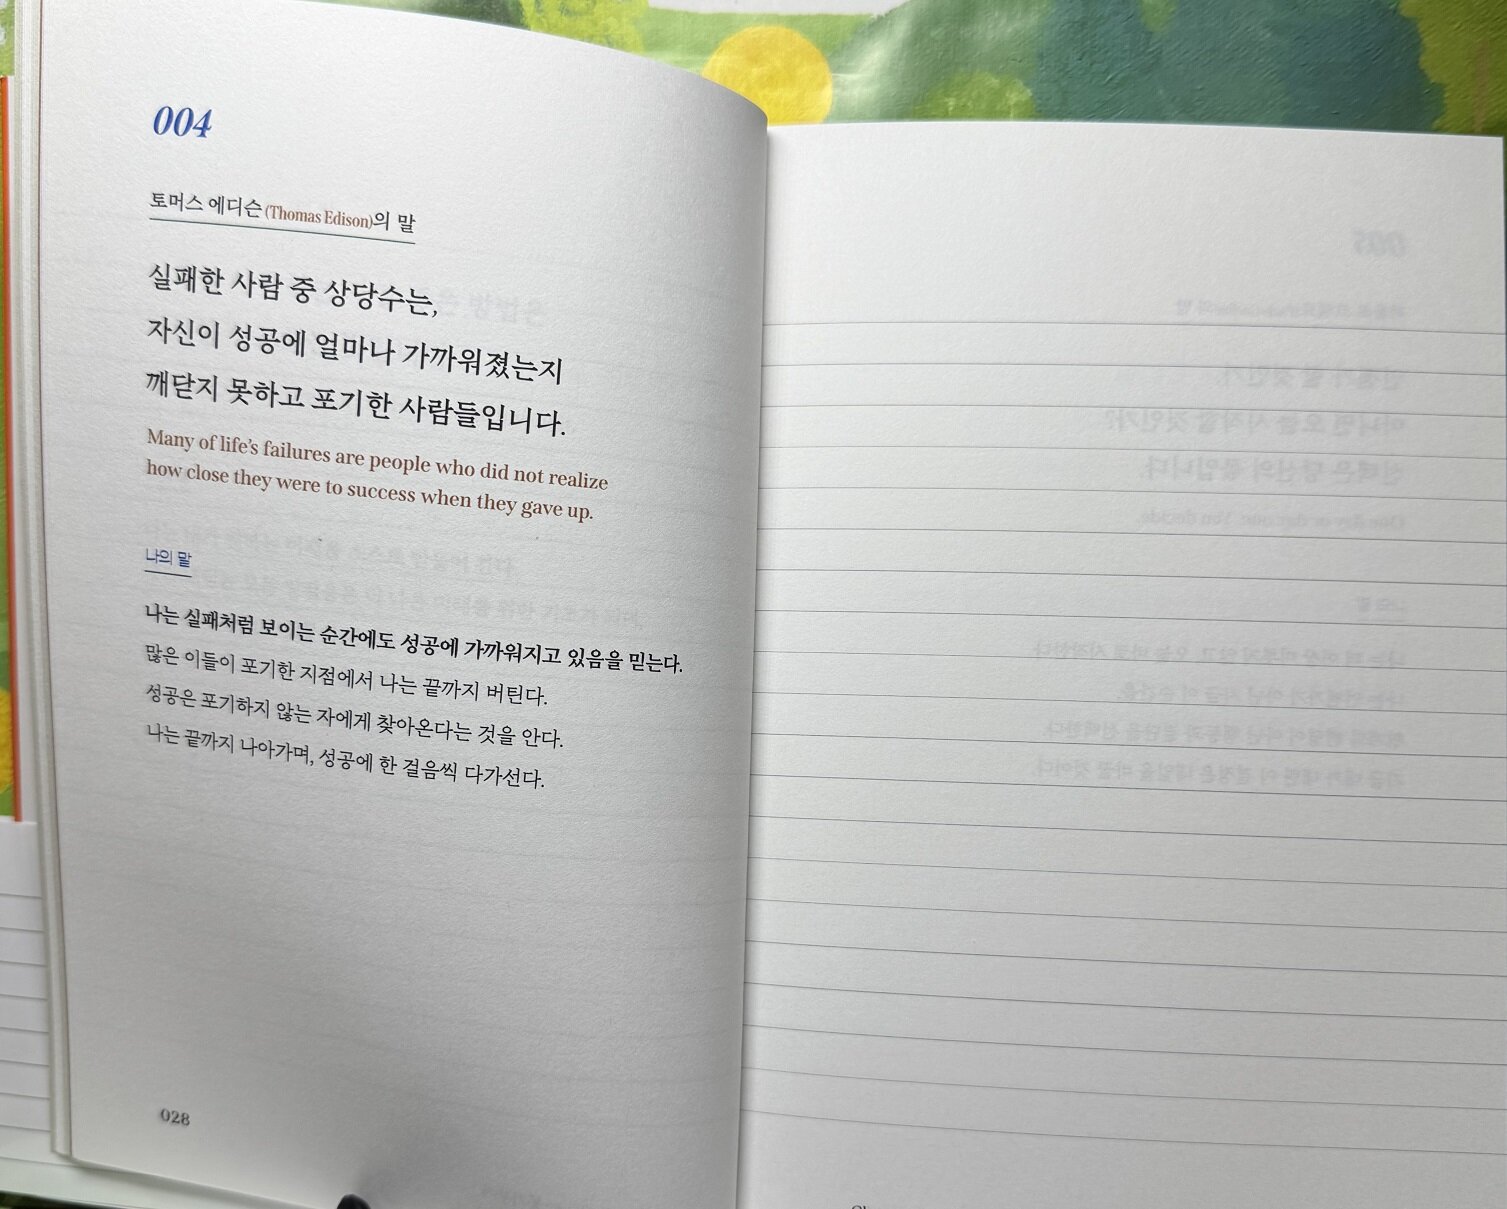 004
토머스 에디슨(Thomas Edison)의 말
실패한 사람 중 상당수는,
자신이 성공에 얼마나 가까워졌는지
깨닫지 못하고 포기한 사람들입니다.
Many of life's failures are people who did not realize
how close they were to success when they gave up.
나의 말
나는 실패처럼 보이는 순간에도 성공에 가까워지고 있음을 믿는다.
많은 이들이 포기한 지점에서 나는 끝까지 버틴다.
성공은 포기하지 않는 자에게 찾아온다는 것을 안다.
나는 끝까지 나아가며, 성공에 한 걸음씩 다가선다.
028